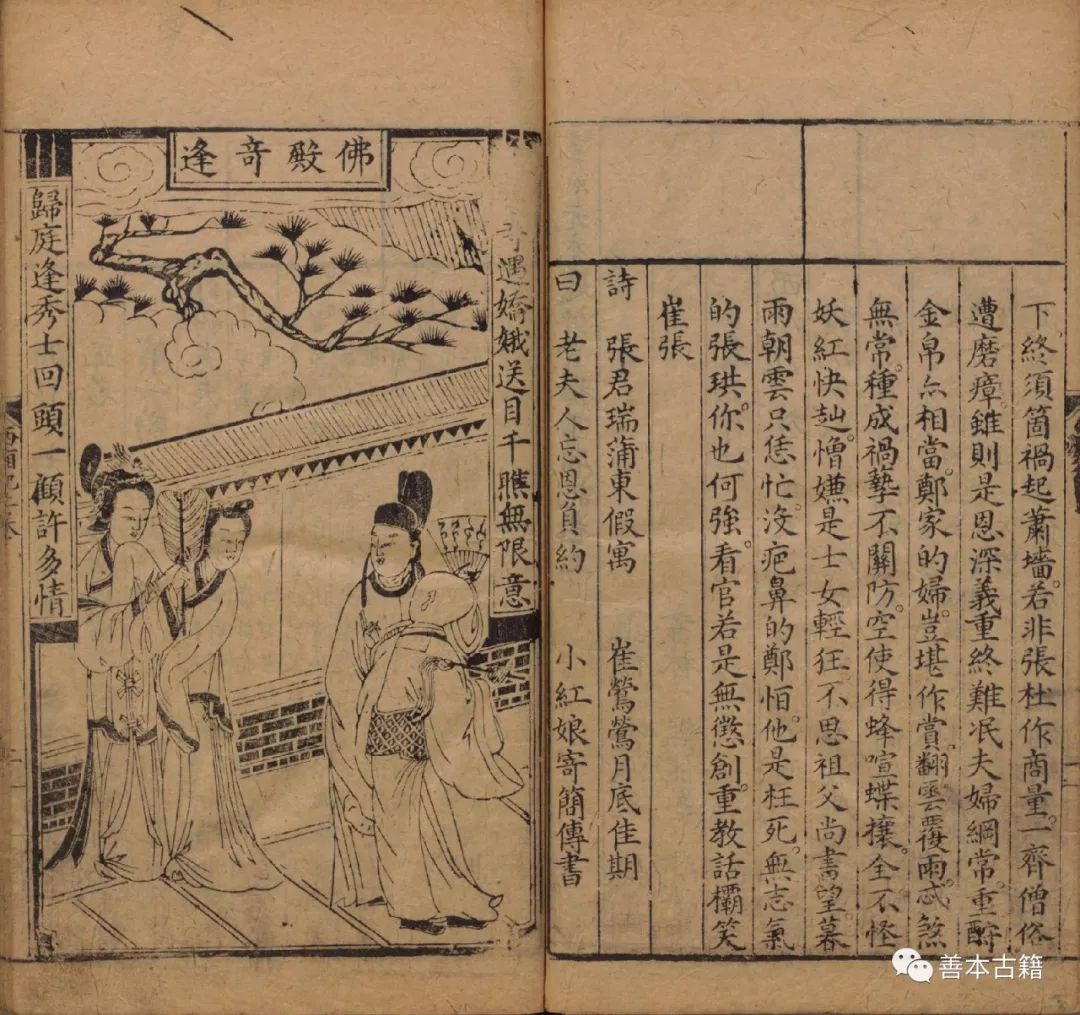 下終須箇禍起蕭墻若非張杜作商量一齊僧俗
遭磨瘴雖則是恩深義重終難泯夫婦綱常重酧
金帛亦相當鄭家的婦豈堪作賞翻雲覆雨忒煞
無常種成禍孽不關防空使得蜂喧蝶攘全不怪
妖紅快赸憎嫌是士女輕狂不思祖父尚書望暮
雨朝雲只恁忙沒疤鼻的鄭恒他是枉死無志氣
的張珙你也何強看官若是無懲創重教話欛笑
崔張
詩 張君瑞蒲東假寓 崔鶯鶯月底佳期
曰 老夫人忘恩負約 小紅娘寄簡傳書
佛殿奇逢
奇遇嬌娥送目千瞧無限意
歸庭逢秀士回頭一顧許多情
西廂記
善本古籍